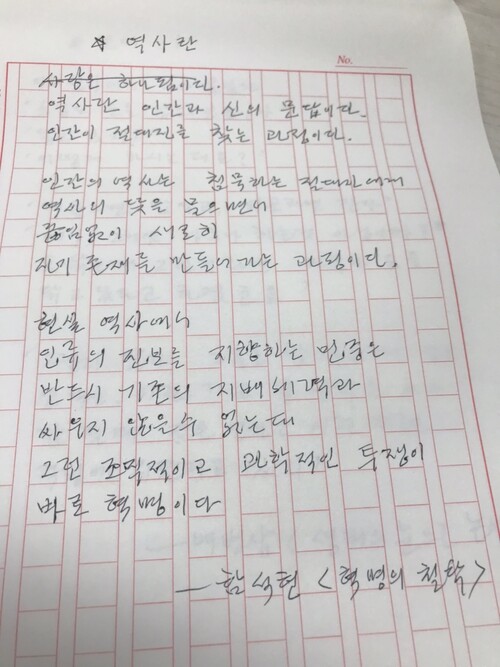 ☆ 역사란
No.
사랑은 하느님이다.
역사란 인간과 신의 문답이다.
인간이 절대자를 찾는 과정이다.
인간의 역사는 침묵하는 절대자에게
역사의 뜻을 물으면서
끊임없이 새로히
자기 존재를 만들어가는 과정이다.
현실 역사에서
인류의 진보를 지향하는 민중은
반드시 기존의 지배세력과
싸우지 않을수 없는데
그런 조직적이고 과학적인 투쟁이
바로 혁명이다
— 함석헌 <혁명의 철학>